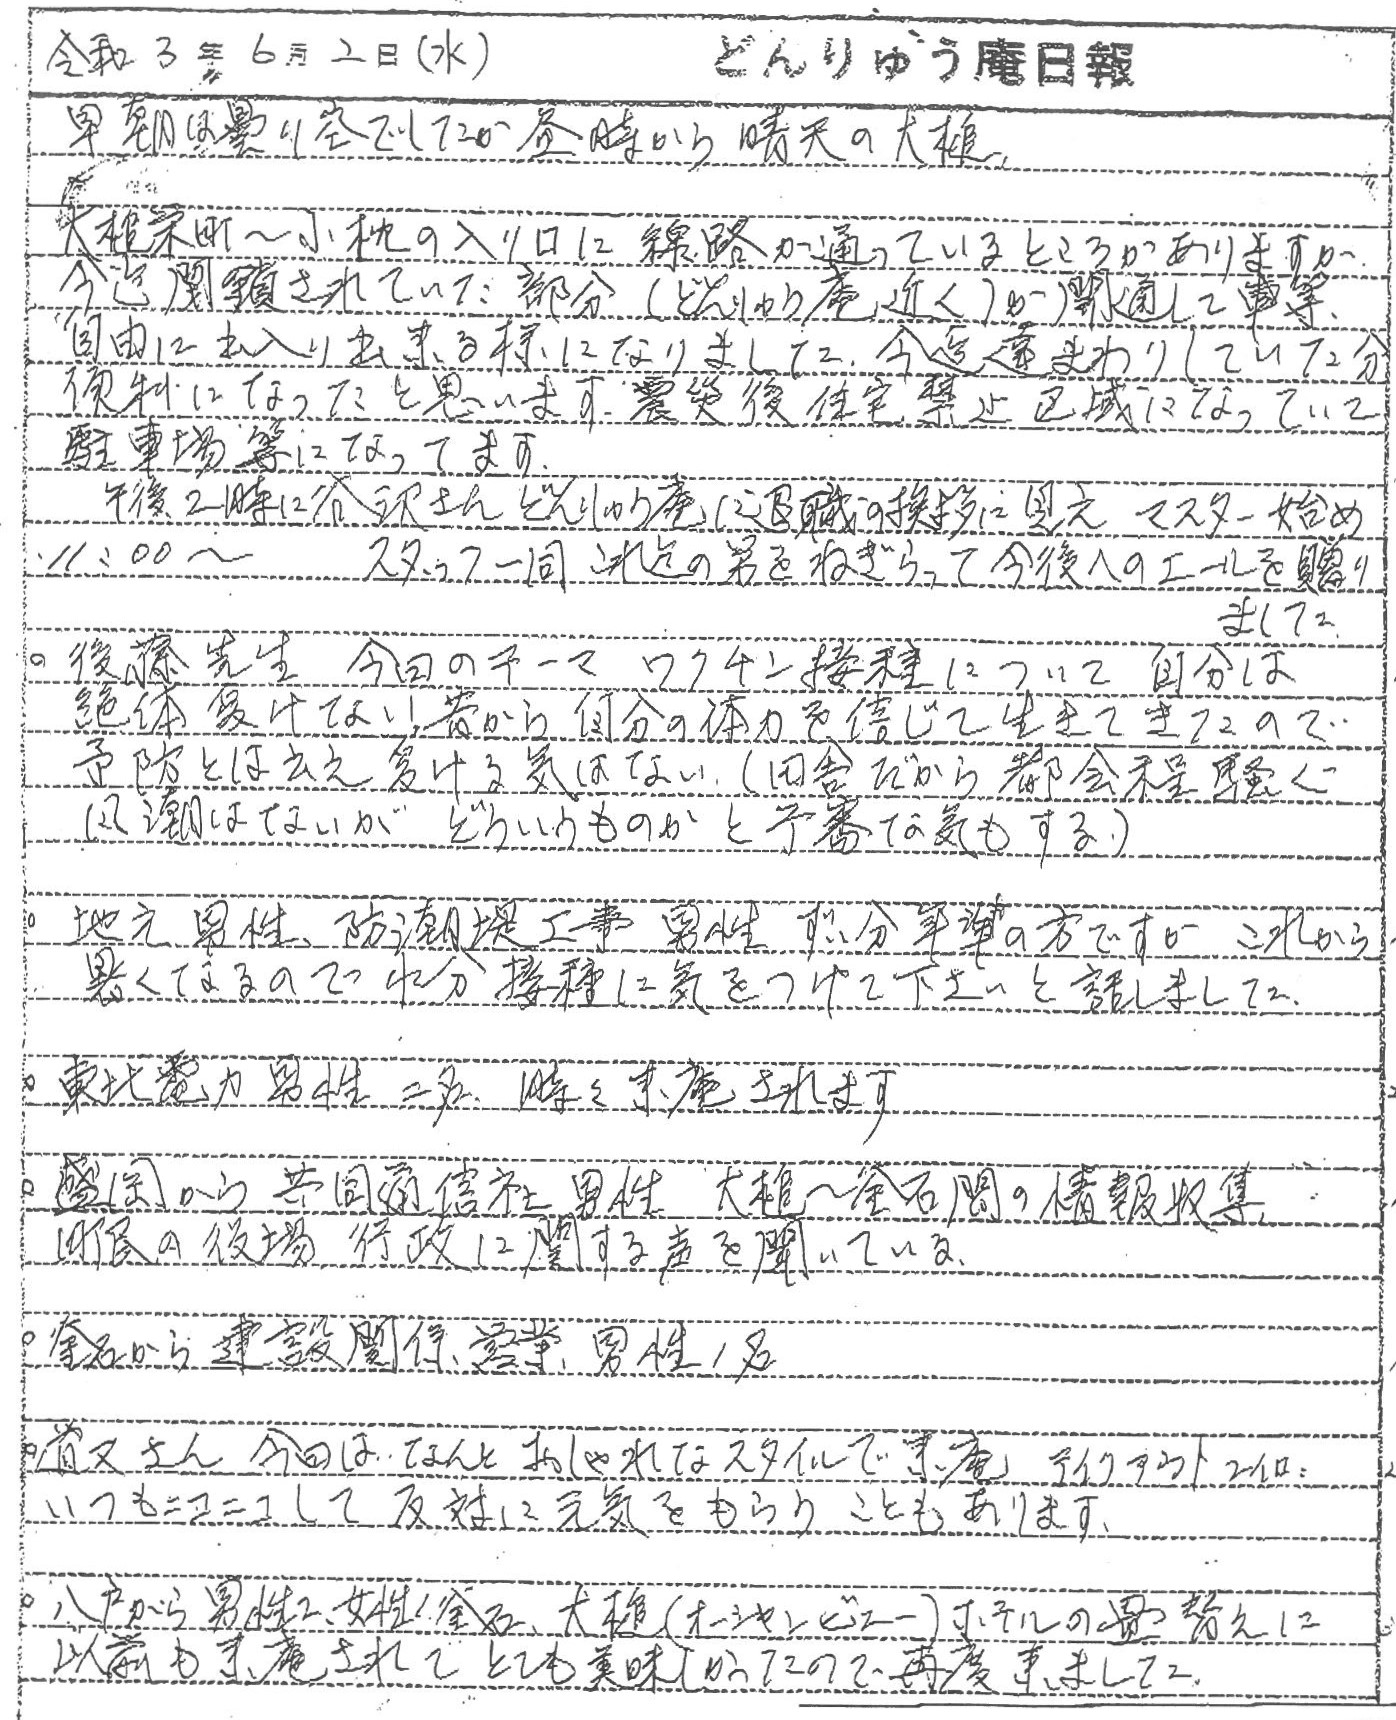 令和3年6月2日(水) どんりゅう庵日報
早朝は曇り空でしたが昼時から晴天の大槌、
大槌栄町〜小枕の入り口に線路が通っているところがありますが、
今迄閉鎖されていた部分(どんりゅう庵近く)が開通して車等、
自由に出入り出来る様になりました。今迄遠まわりしていた分
便利になったと思います。震災後住宅禁止区域になっていて
駐車場等になってます。
午後2時に谷沢さんどんりゅう庵に退職の挨拶に見え マスター始め
11:00〜 スタッフ一同これ迄の労をねぎらって今後へのエールを贈り
ました
○ 後藤先生 今回のテーマ ワクチン接種について 自分は
絶体受けない、昔から自分の体力を信じて生きてきたので
予防とは云え受ける気はない。(田舎だから都会程騒ぐ
風潮はないが どういうものかと不審な気もする)
○ 地元男性、防潮堤工事男性 ずい分年輩の方ですが これから
暑くなるので水分接種に気をつけて下さいと話しました。
○ 東北電力男性二名、時々来庵されます
○ 盛岡から共同通信社男性 大槌〜釜石間の情報収集、
町民の役場行政に関する声を聞いている。
○ 釜石から建設関係、営業、男性1名
○ さん 今日は、なんとおしゃれなスタイルで来庵 テイクアウト
いつもニコニコして反対に元気をもらうこともあります。
○ 八戸から男性2、女性1、釜石、大槌(オーシャンビュー)ホテルの畳替えに
以前も来庵されてとても美味しかったので再度来ました。